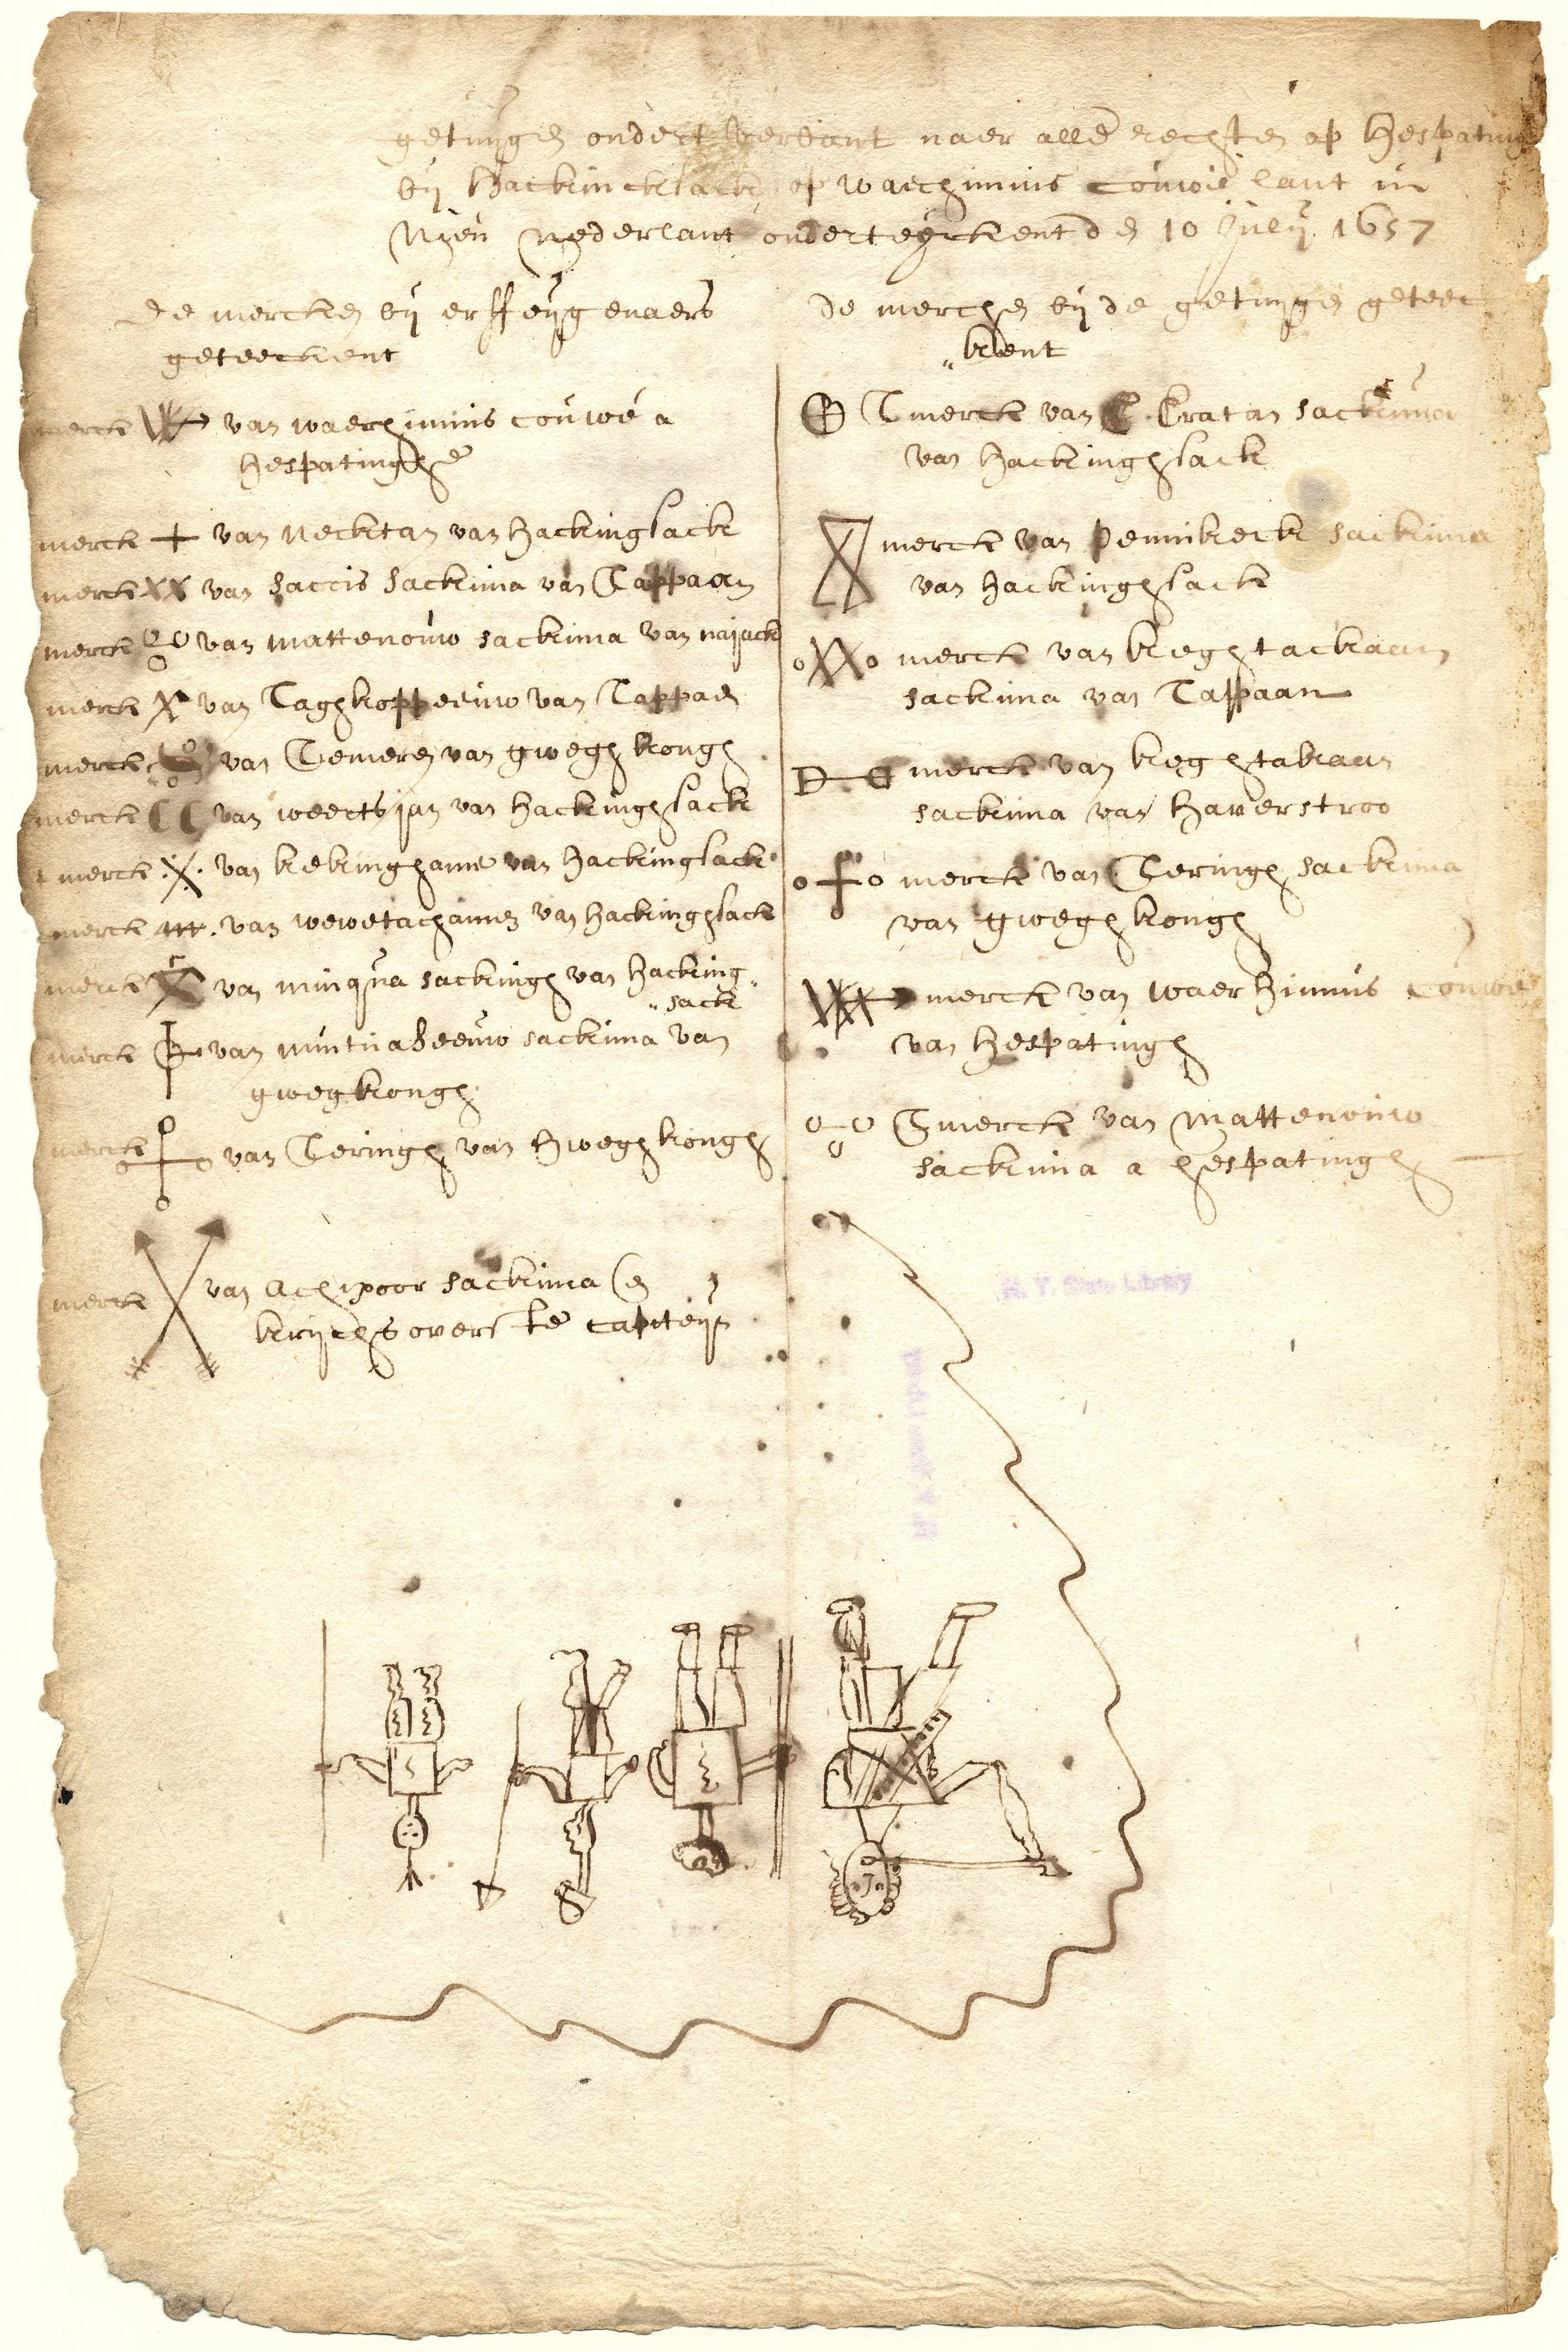 getuijgen ondert verbant naer alle rechten op Hespatingh
bij Hackincksack, op waerhinnis couwe lant in
Nieu Nederlant onderteyckent den 10 Julij 1657
De mercken bij erffeijgenaers
geteeckent
merck van waerhinnis couwe a
hespatingh
merck + van Necktan van hackingsack
merck XX van saccis sackima van Tappaan
merck van mattenouw sackima van najack
merck van Taghkoppeeuw van Tappaen
merck van Temeren van gweghkongh
merck van weertsjan van hackinghsack
merck van kekinghame van hackingsack
merck van wewetachamen van hackinghsack
merck van minqua sackingh van hacking„
„sack
merck van mintuaheeuw sackima van
gwegkongh
merck van Teringh van hweghkongh
merck van Achipoor sackima en
krijchs overste capiteijn
De mercken bij de getuijgen geteec
„kent
T merck van Oratan sackima
van hackinghsack
merck van pennikeck sackima
van hackinghsack
merck van keghtackaan
sackima van Tappaan
merck van keghtakaan
sackima van haverstroo
merck van Teringh sackima
van gweghkongh
merck van waerhinnis couwe
van hespatingh
T merck van mattenouw
sackima a hespatingh
N. Y. State Library
N. Y. State Library